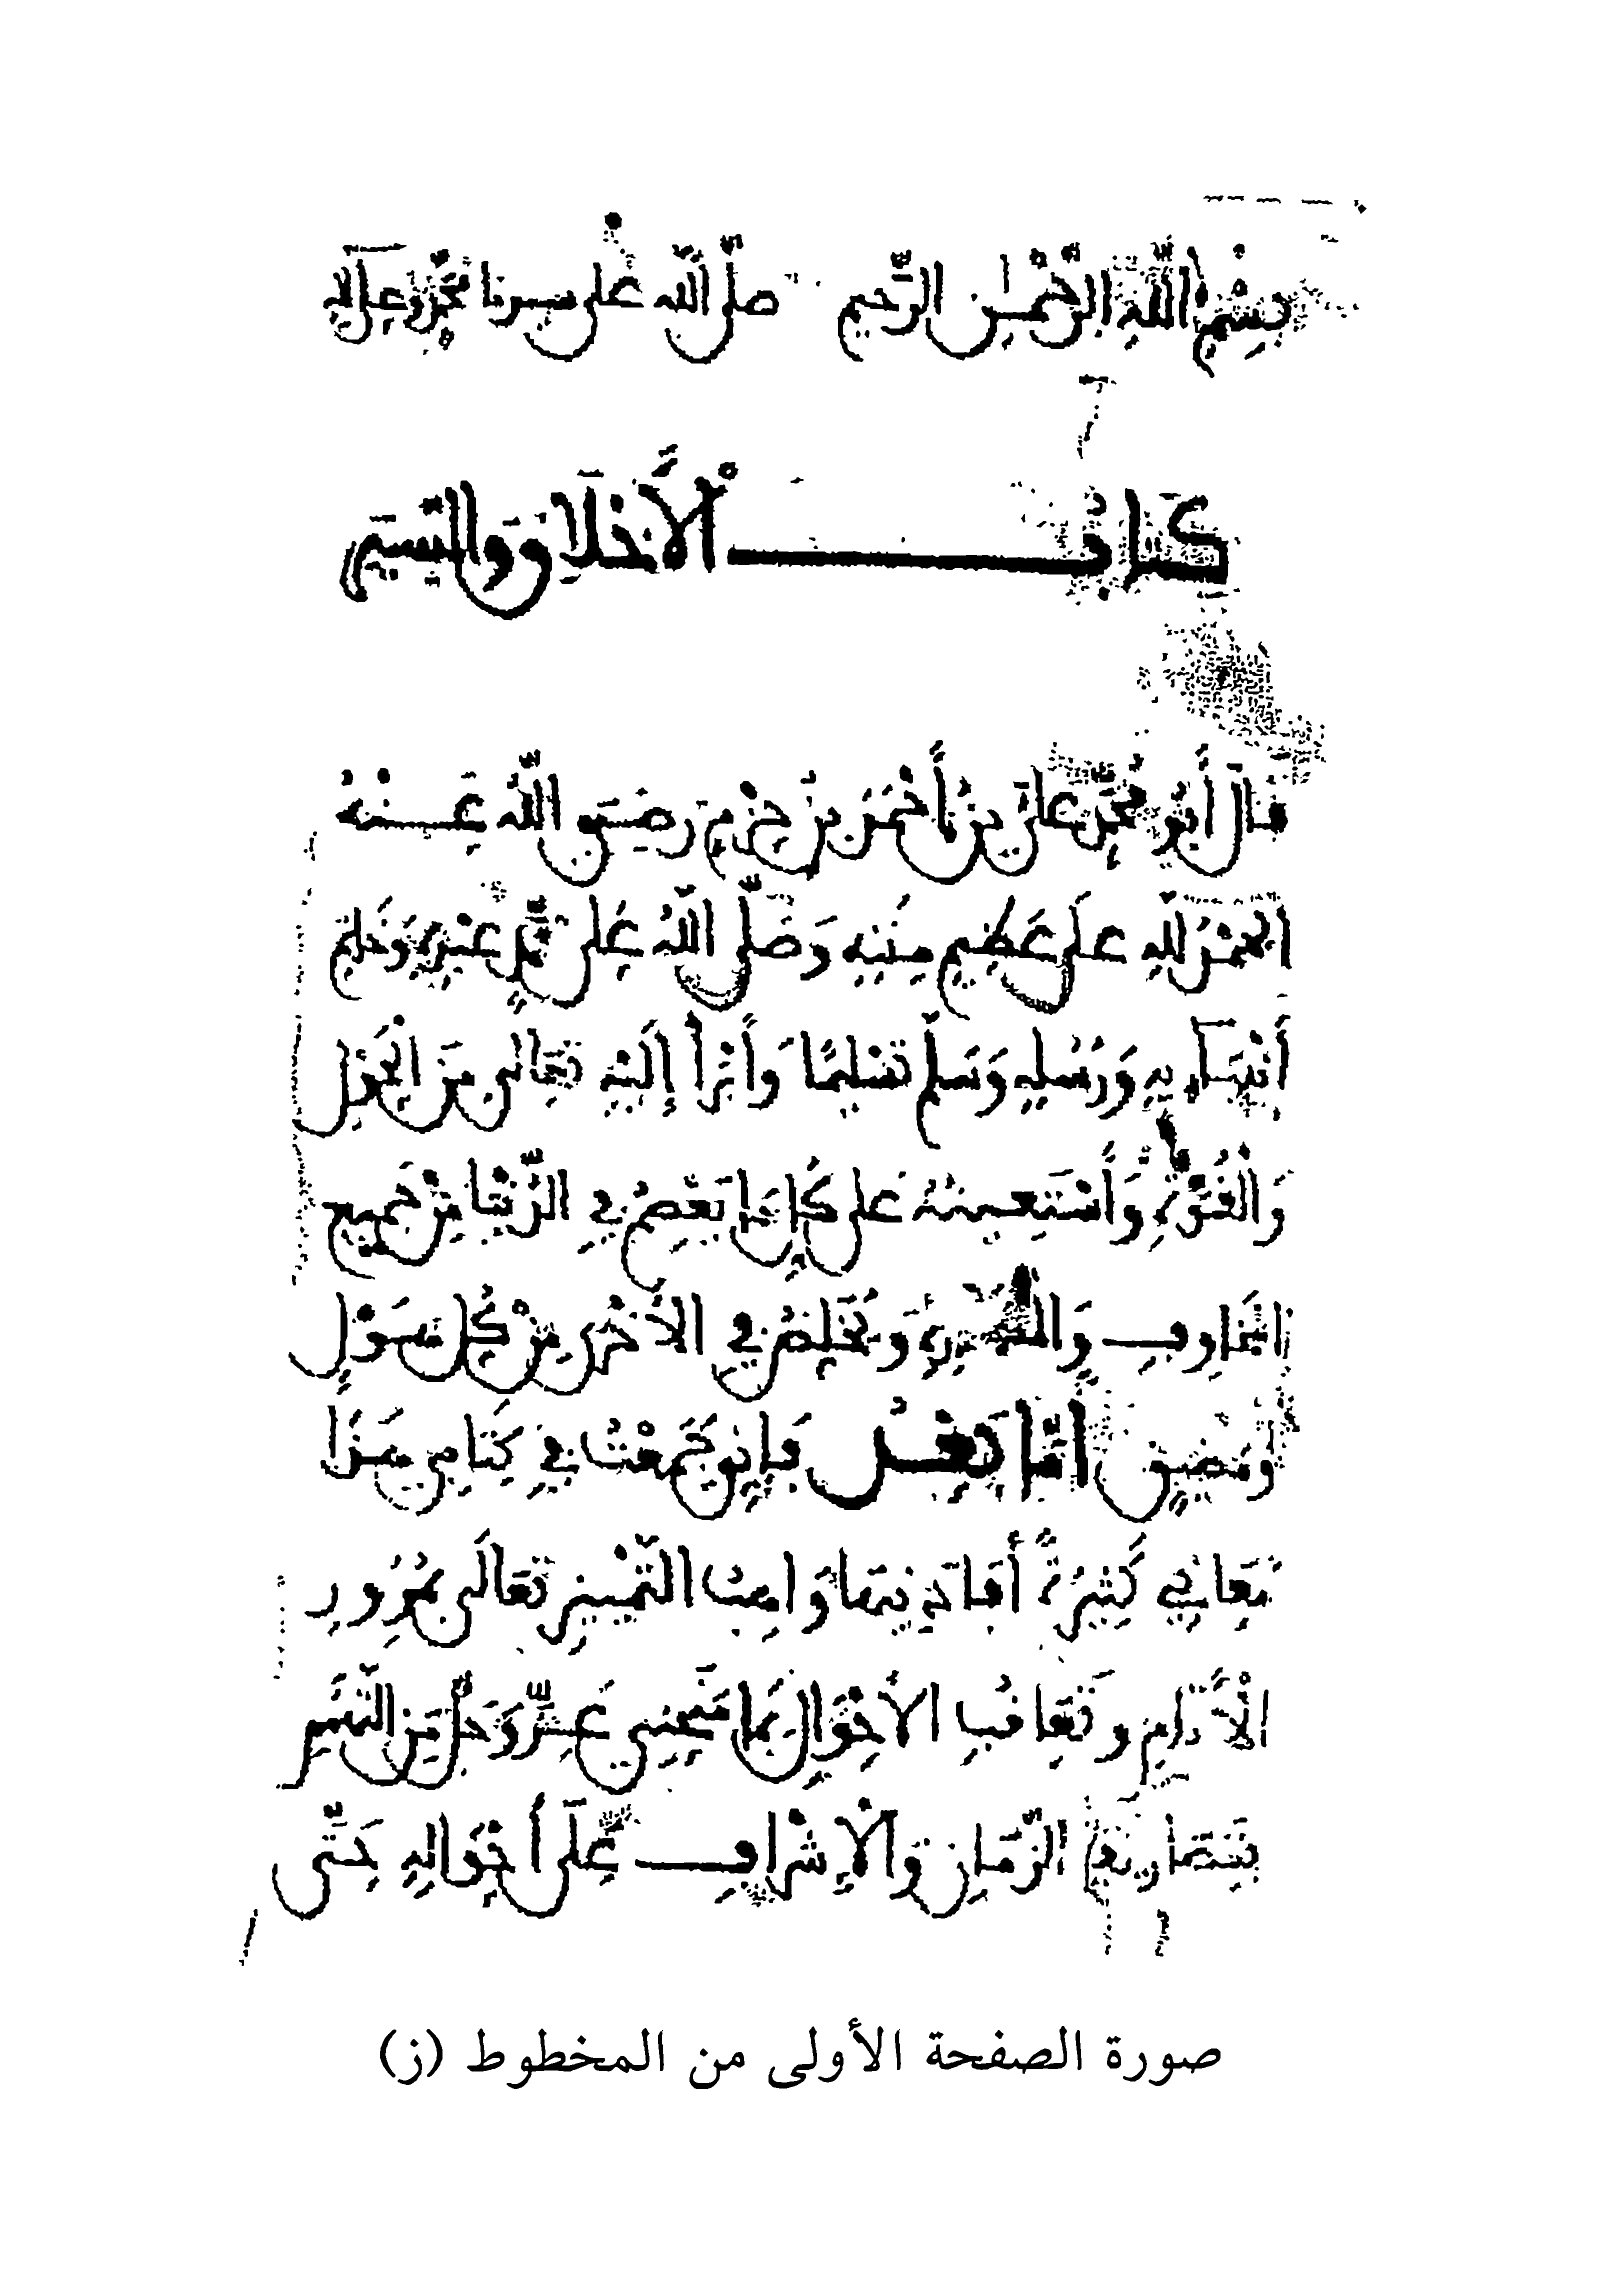 بسم الله الرحمن الرحيم صلى الله على سيدنا محمد وعلى آله
كتاب الأخلاق والسير
قال أبو محمد علي بن أحمد بن حزم رضي الله عنه
الحمد لله على عظيم مننه وصلى الله على محمد عبده وخاتم
أنبيائه ورسله وسلم تسليما وأبرأ إليه تعالى من الحول
والقوة وأستعينه على كل ما يعصم في الدنيا من جميع
المخاوف والمكاره ويخلص في الأخرى من كل هول
ومضيق أما بعد فإني جمعت في كتابي هذا
معاني كثيرة أفادنيها واهب التمييز تعالى بمرور
الأيام وتعاقب الأحوال بما منحني عز وجل من التهمم
بتصاريف الزمان والإشراف على أحواله حتى
صورة الصفحة الأولى من المخطوط (ز)